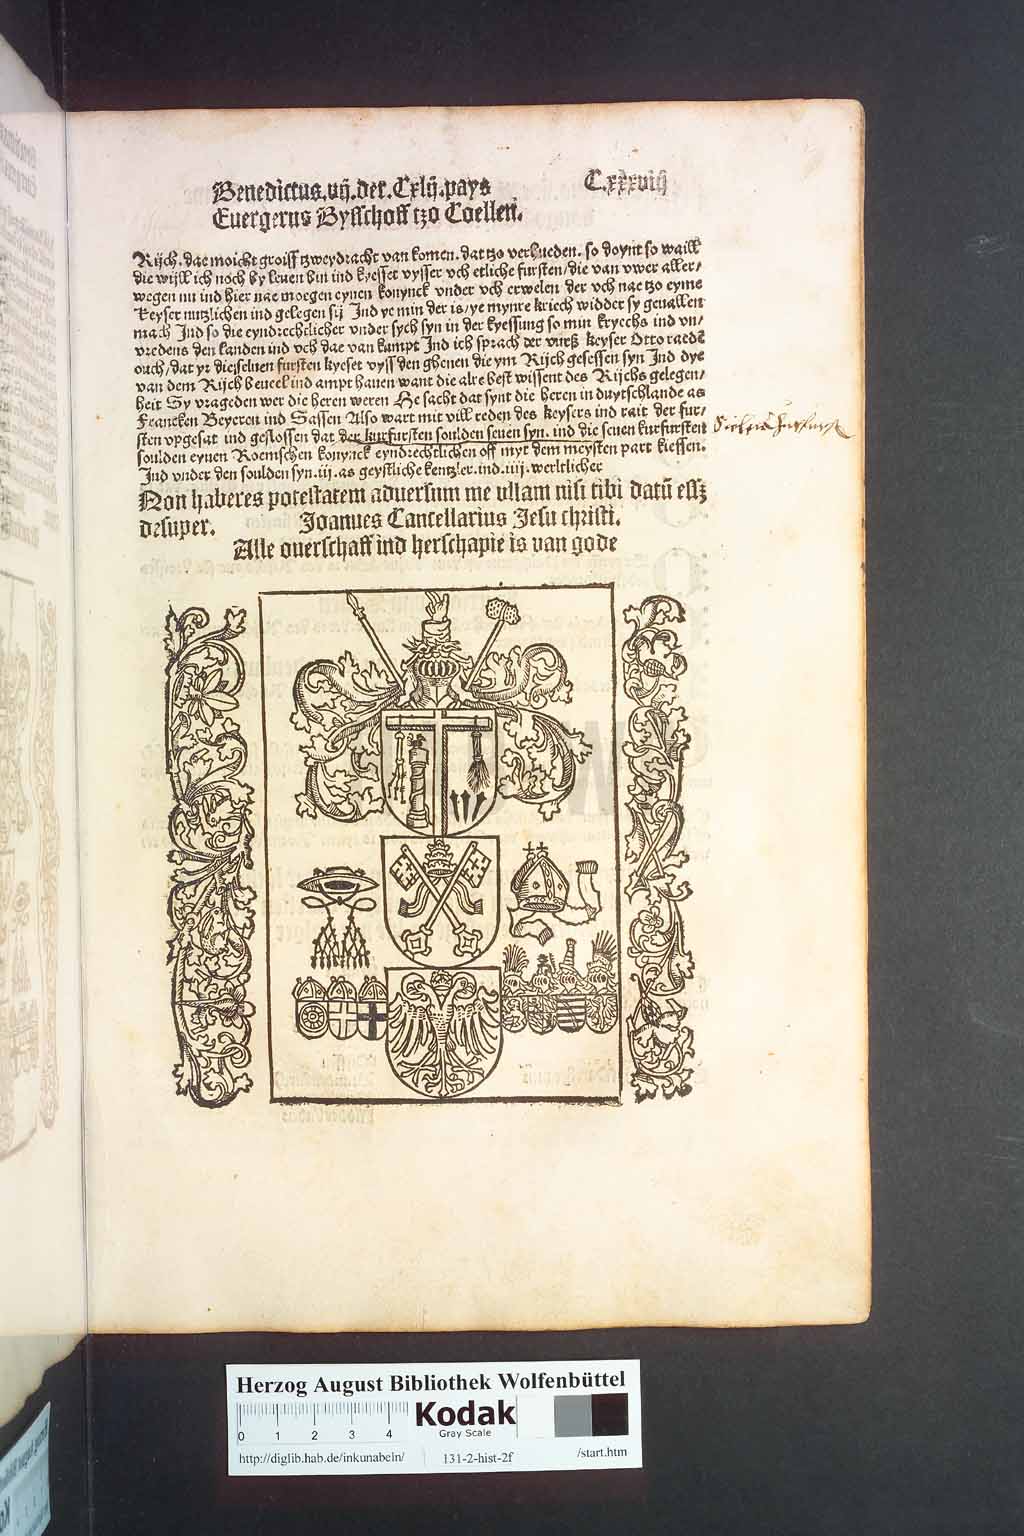 Benedictus.vij.der.Cxlij.pays C.xxxviij
Euergerus Bysschoff tzo Coellen.
Rijch. dae moicht groiss tzweydracht van komen. dat tzo verhueden. so doynt so waill
die wijll ich noch by leuen bin ind kyesset vysser vch etliche fursten/die van vwer aller/
wegen nu ind hier nae moegen eynen konynck vnder vch erwelen der vch nae tzo eyme
keyser nutzlichen ind gelegen sij Ind ye min der is/ye mynre kriech widder sy geuallen
mach Ind so die eyndrechtlicher vnder sych syn in der kyessung so min kryechs ind vn/
vredens den landen ind vch dae van kumpt Ind ich sprach der vurß keyser Otto raedē
ouch/dat yr dieselnen fursten kyeset vyss den ghenen die ym Rijch gesessen syn Ind dye
van dem Rijch beueel ind ampt hauen want die alre best wissent des Rijchs gelegen/
heit Sy vrageden wer die heren weren He sacht dat synt die heren in duytschlande as
Francken Beyeren ind Sassen Also wart mit vill reden des keysers ind rait der fur/
sten vpgesat ind geslossen dat der kurfursten soulden seuen syn. ind die seuen kurfursten
soulden eynen Roemschen konynck eyndrechtlichen off myt dem meysten part kiessen.
Ind vnder den soulden syn.iij.as geystliche kentzler.ind.iiij.werltlicher
Non haberes potestatem aduersum me vllam nisi tibi datū essꝫ
desuper. Joannes Cancellarius Jesu christi.
Alle ouerschaff ind herschapie is van gode
Herzog August Bibliothek Wolfenbüttel
0 1 2 3 4 Kodak
Gray Scale
http://diglib.hab.de/inkunabeln/ 131-2-hist-2f /start.htm